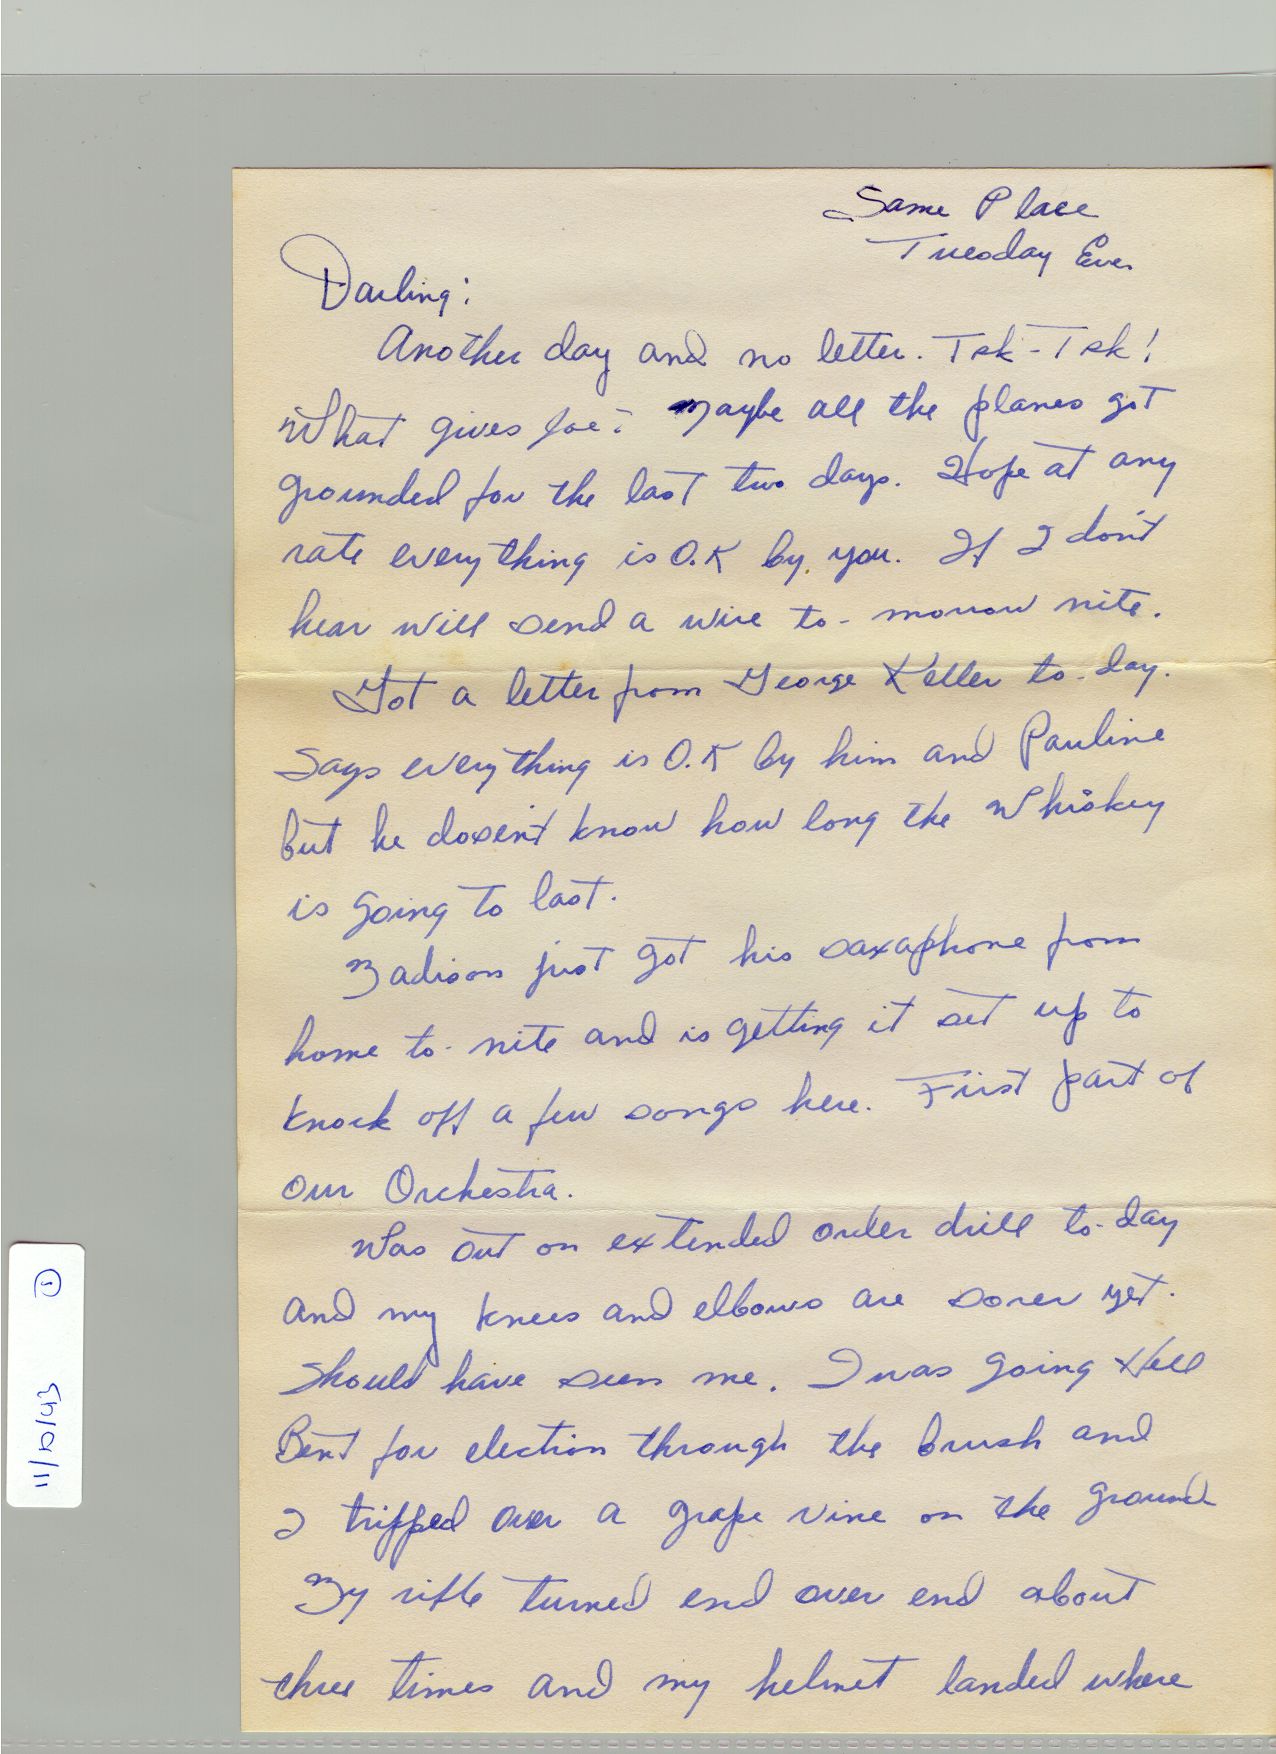 Same Place
Tuesday Eve.
Darling:
Another day and no letter. Tsk-Tsk!
What gives Joe? Maybe all the planes got
grounded for the last two days. Hope at any
rate everything is O.K by you. If I don't
hear will send a wire to-morrow nite.
Got a letter from George Keller to-day.
Says everything is O.K by him and Pauline
but he dosen't know how long the Whiskey
is going to last.
Madison just got his saxaphone from
home to-nite and is getting it set up to
knock off a few songs here. First part of
our Orchestra.
Was out on extended order drill to-day
and my knees and elbows are sorer yet.
Should have seen me. I was going Hell
Bent for election through the brush and
I tripped over a grape vine on the ground
My rifle turned end over end about
three times and my helmet landed where
11/10/43 1